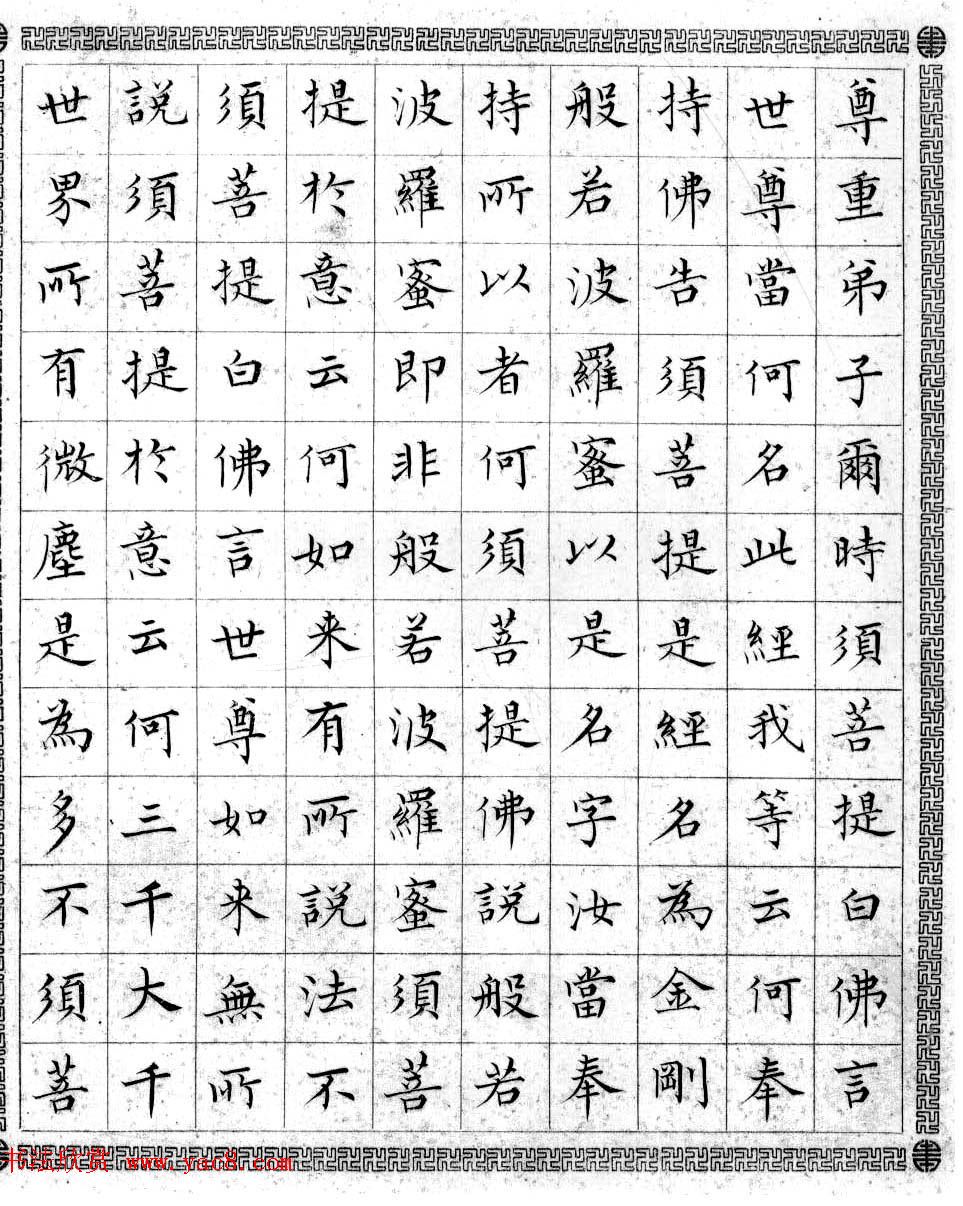 尊重弟子爾時須菩提白佛言
世尊當何名此經我等云何奉
持佛告須菩提是經名為金剛
般若波羅蜜以是名字汝當奉
持所以者何須菩提佛說般若
波羅蜜即非般若波羅蜜須菩
提於意云何如来有所說法不
須菩提白佛言世尊如来無所
說須菩提於意云何三千大千
世界所有微塵是為多不須菩
书法欣赏 www.yac8.com